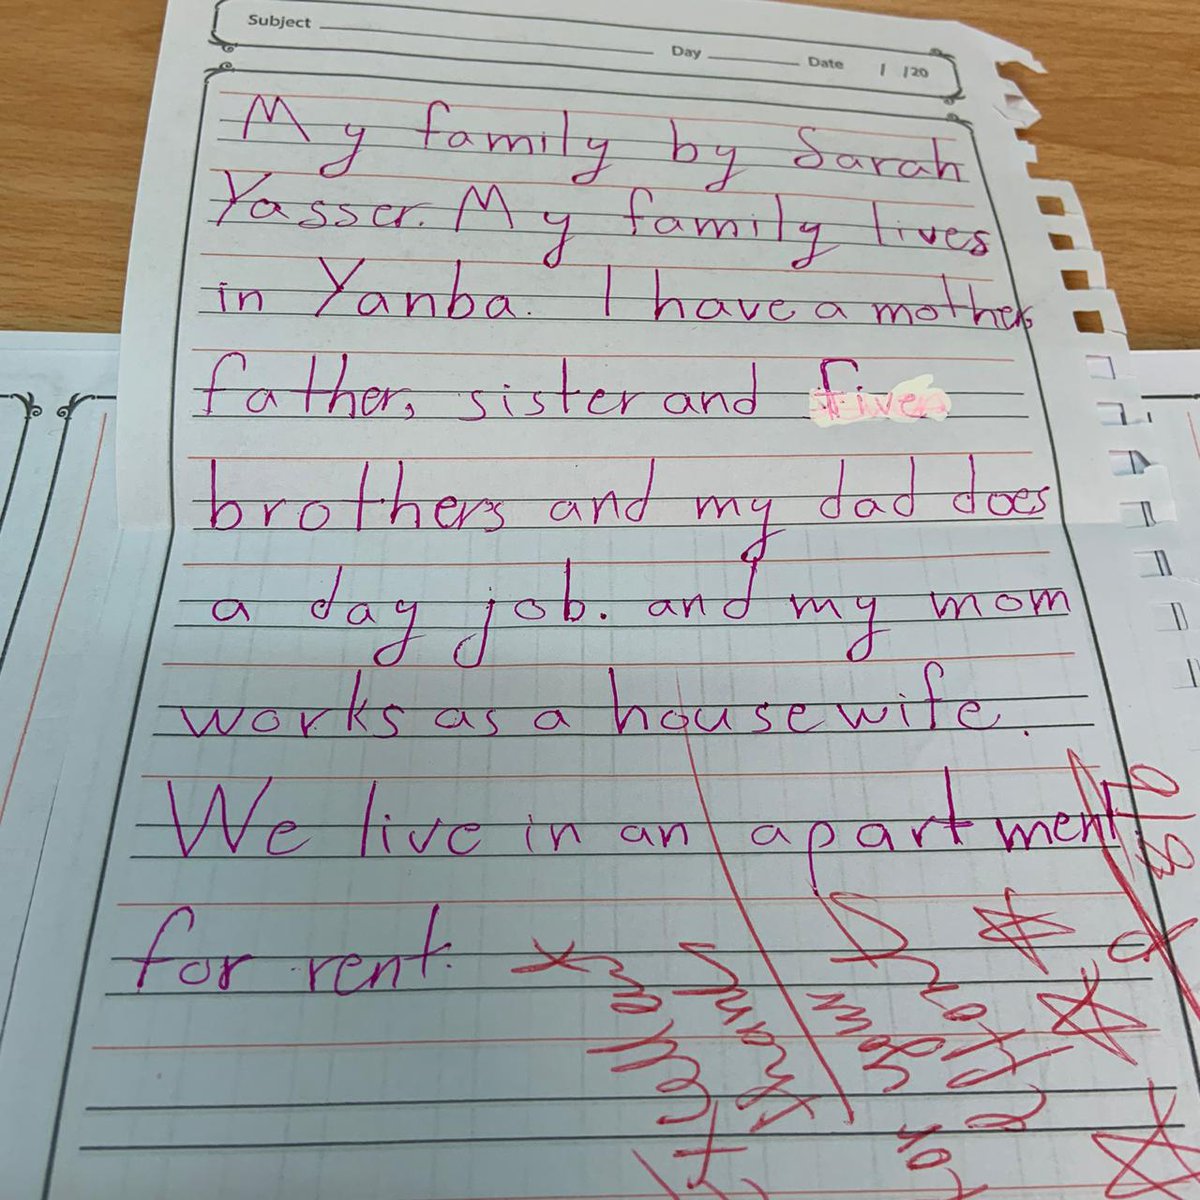 Subject
Day Date / /20
My family by Sarah
Yasser. My family lives
in Yanba. I have a mother,
father, sister and five
brothers and my dad does
a day job. and my mom
works as a housewife.
We live in an apartment
for rent.